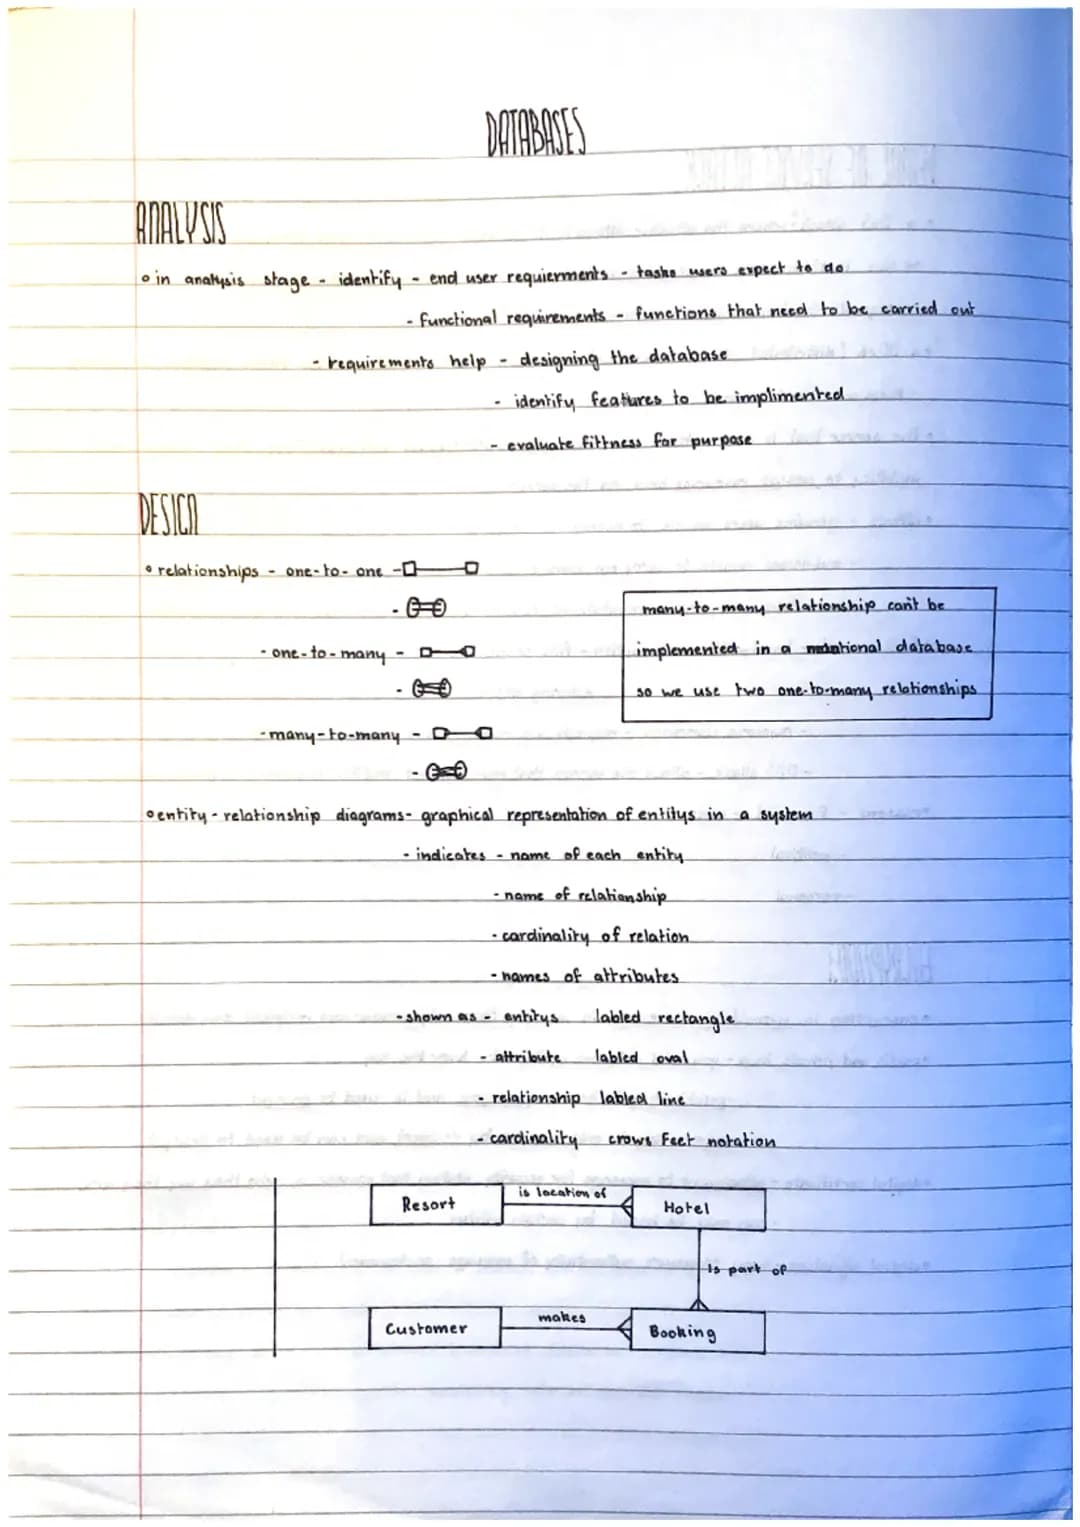 DATABASES
ANALYSIS
in analysis stage - identify - end user requierments - tasks users expect to do
- functional requirements - functions that need to be carried out
- requirements help - designing the database
- identify features to be implimented
- evaluate fittness for purpose
DESIGN
relationships - one-to-one -
- one-to-many -
- many-to-many -
many-to-many relationship can't be
implemented in a database
so we use two one-to-many relationships
entity-relationship diagrams - graphical representation of entitys in a system
- indicates - name of each entity
- name of relationship
- cardinality of relation
- names of attributes
- shown as - entitys labled rectangle
- attribute labled oval
- relationship labled line
- cardinality crows feet notation
Resort is location of Hotel
is part of
Customer makes Booking